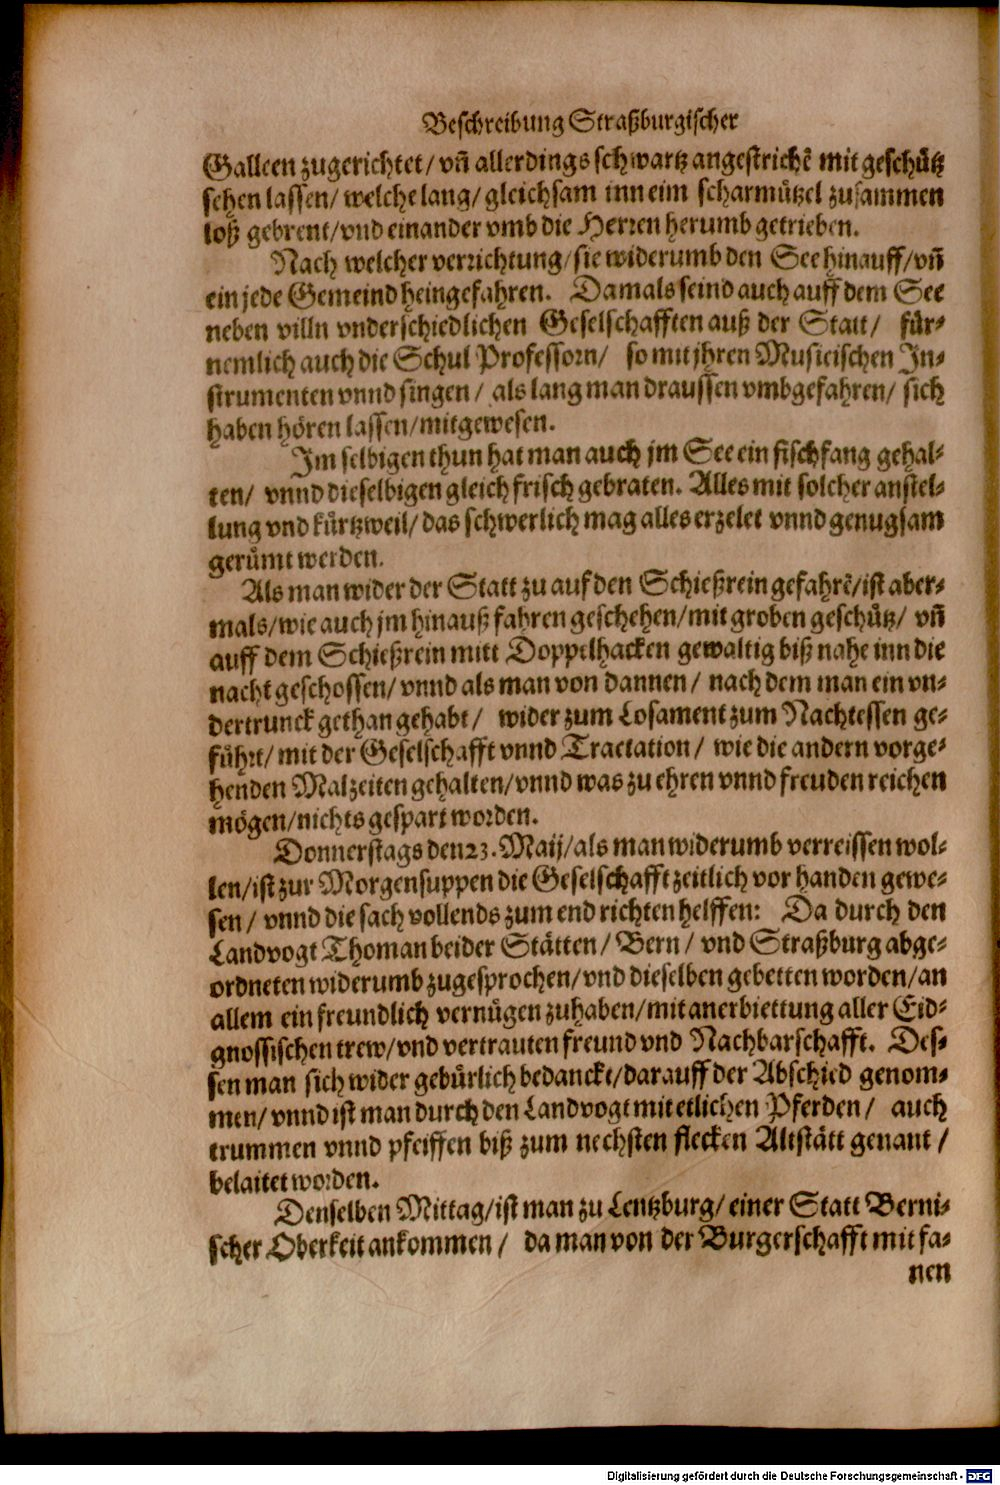 Beschreibung Straßburgischer
Galleen zugerichtet/ vñ allerdings schwartz angestrichẽ mit geschuͤtz
sehen lassen/ welche lang/ gleichsam inn eim scharmuͤtzel zusammen
loß gebrent/ vnd einander vmb die Herren herumb getrieben.
Nach welcher verrichtung/ sie widerumb den See hinauff/ vñ
ein jede Gemeind heingefahren. Damals seind auch auff dem See
neben villn vnderschiedlichen Geselschafften auß der Statt/ fuͤr⸗
nemlich auch die Schul Professorn/ so mit jhren Musicischen In⸗
strumenten vnnd singen/ als lang man draussen vmbgefahren/ sich
haben hoͤren lassen/ mitgewesen.
Im selbigen thun hat man auch jm See ein fischfang gehal⸗
ten/ vnnd dieselbigen gleich frisch gebraten. Alles mit solcher anstel⸗
lung vnd kuͤrtzweil/ das schwerlich mag alles erzelet vnnd genugsam
geruͤmt werden.
Als man wider der Statt zu auf den Schießrein gefahrẽ/ ist aber⸗
mals/ wie auch jm hinauß fahren geschehen/ mit groben geschuͤtz/ vñ
auff dem Schießrein mitt Doppelhacken gewaltig biß nahe inn die
nacht geschossen/ vnnd als man von dannen/ nach dem man ein vn⸗
dertrunck gethan gehabt/ wider zum Losament zum Nachtessen ge⸗
fuͤhrt/ mit der Geselschafft vnnd Tractation/ wie die andern vorge⸗
henden Malzeiten gehalten/ vnnd was zu ehren vnnd freuden reichen
moͤgen/ nichts gespart worden.
Donnerstags den 23. Maij/ als man widerumb verreissen wol⸗
len/ ist zur Morgensuppen die Geselschafft zeitlich vor handen gewe⸗
sen/ vnnd die sach vollends zum end richten helffen: Da durch den
Landvogt Thoman beider Staͤtten/ Bern/ vnd Straßburg abge⸗
ordneten widerumb zugesprochen/ vnd dieselben gebetten worden/ an
allem ein freundlich vernuͤgen zuhaben/ mit anerbiettung aller Eid⸗
gnossischen trew/ vnd vertrauten freund vnd Nachbarschafft. Des⸗
sen man sich wider gebuͤrlich bedanckt/ darauff der Abschied genom⸗
men/ vnnd ist man durch den Landvogt mit etlichen Pferden/ auch
trummen vnnd pfeiffen biß zum nechsten flecken Altstaͤtt genant/
belaitet worden.
Denselben Mittag/ ist man zu Lentzburg/ einer Statt Berni⸗
scher Oberkeit ankommen/ da man von der Burgerschafft mit fa⸗
nen
Digitalisierung gefördert durch die Deutsche Forschungsgemeinschaft - DFG